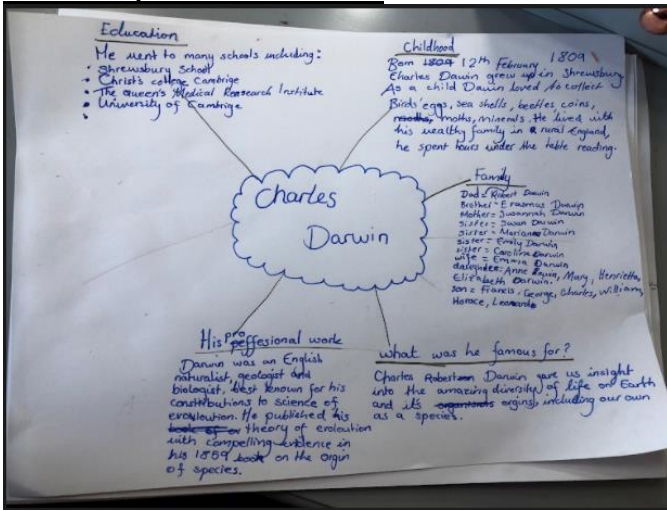 Education
He went to many schools including:
• Shrewsbury School
• Christ's college Cambrige
• The Queen's Medical Reasearch Institute
• University of Cambrige
Childhood
Born 1809 12th February 1809
Charles Dawin grew up in Shrewsbury
As a child Dawin loved to collect
Birds' eggs, sea shells, beetles coins,
moths, moths, minerals. He lived with
his wealthy family in a rural England,
he spent hours under the table reading.
Charles
Darwin
Family
Dad = Robert Darwin
Brother = Erasmus Darwin
Mother = Susannah Darwin
sister = Susan Darwin
sister = Marianne Darwin
sister = Emily Darwin
sister = Caroline Darwin
wife = Emma Darwin
daughter = Anne Darwin, Mary, Henrietta,
Elizabeth Darwin.
son = Francis, George, Charles, William,
Horace, Leonard
His proffesional work
Darwin was an English
naturalist, geologist and
biologist, best known for his
contributions to science of
evoloution. He published his
book of theory of evoloution
with compelling evidence in
his 1859 book on the orgin
of species.
what was he famous for?
Charles Robert Darwin gave us insight
into the amazing diversity of life on Earth
and it's orgins, including our own
as a species.